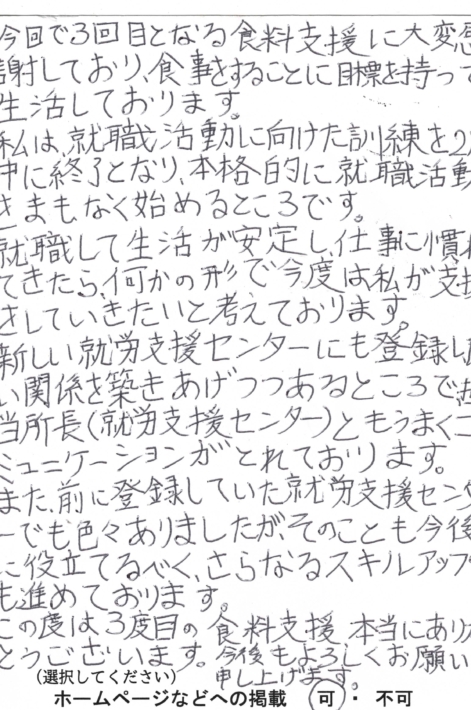 今回で3回目となる食料支援に大変感
謝しており、食事をすることに目標を持って
生活しております。
私は、就職活動に向けた訓練を2月
中に終了となり、本格的に就職活動
をまもなく始めるところです。
就職して生活が安定し、仕事に慣れ
てきたら、何かの形で今度は私が支援
をしていきたいと考えております。
新しい就労支援センターにも登録し
い関係を築きあげつつあるところで
当所長(就労支援センター)ともうまくコ
ミュニケーションがとれております。
また、前に登録していた就労支援セン
ーでも色々ありましたが、そのことも今後
に役立てるべく、さらなるスキルアップ
も進めております。
この度は3度目の食料支援本当にあり
とうございます。今後もよろしくお願い
申し上げます。
(選択してください)
ホームページなどへの掲載 可 ・ 不可